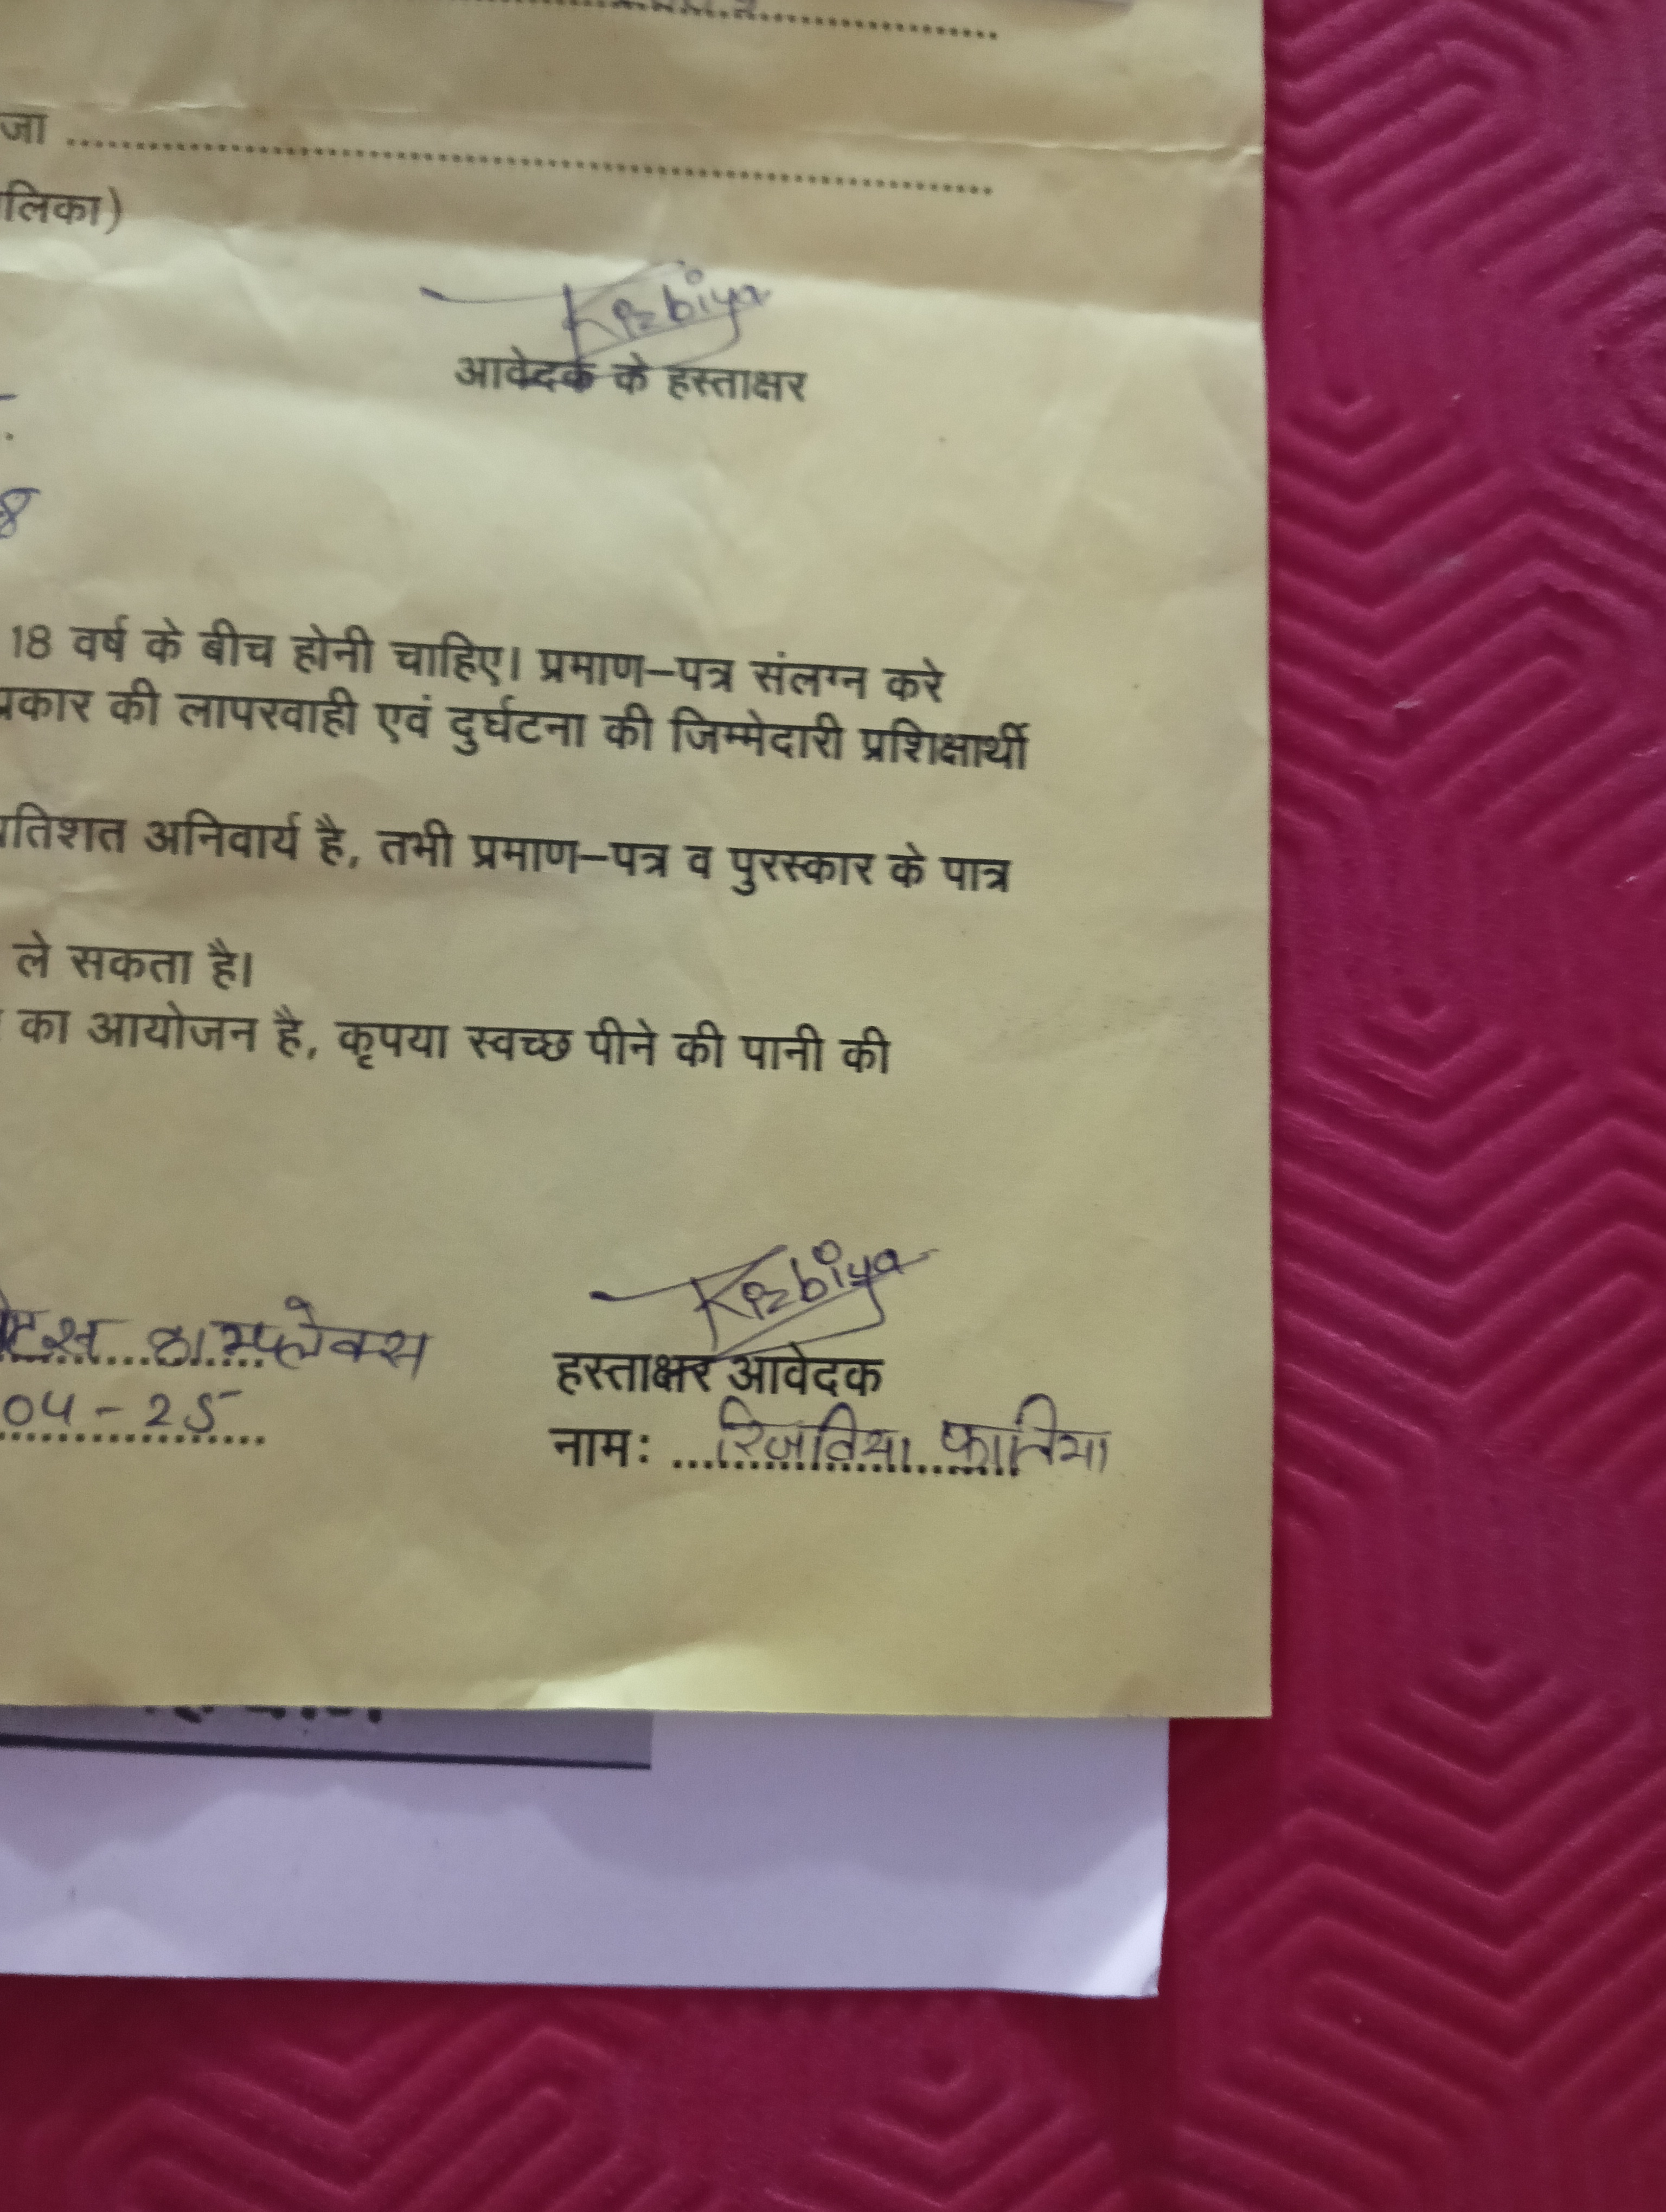 जा
लिका)
Rizbiya
आवेदक के हस्ताक्षर
8
18 वर्ष के बीच होनी चाहिए। प्रमाण–पत्र संलग्न करे
प्रकार की लापरवाही एवं दुर्घटना की जिम्मेदारी प्रशिक्षार्थी
प्रतिशत अनिवार्य है, तभी प्रमाण–पत्र व पुरस्कार के पात्र
ले सकता है।
का आयोजन है, कृपया स्वच्छ पीने की पानी की
Rizbiya
काम्प्लेक्स
हस्ताक्षर आवेदक
04-25
नामः रिजविया फातिमा